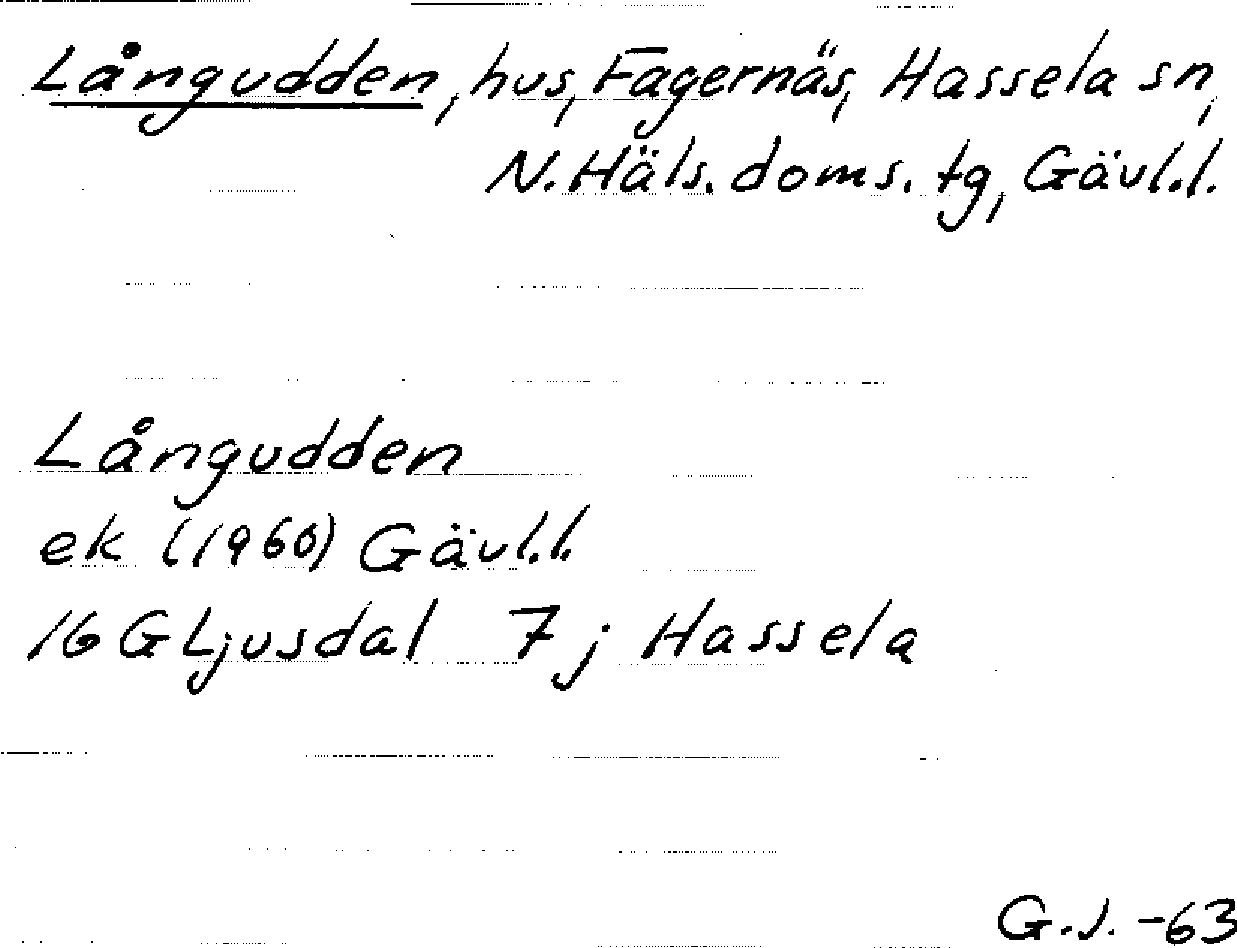 Långudden, hus, Fagernäs, Hassela sn,
N. Häls. doms. tg, Gävl.l.
Långudden
ek (1960) Gävl.l.
16 G Ljusdal 7 j Hassela
G.J. -63